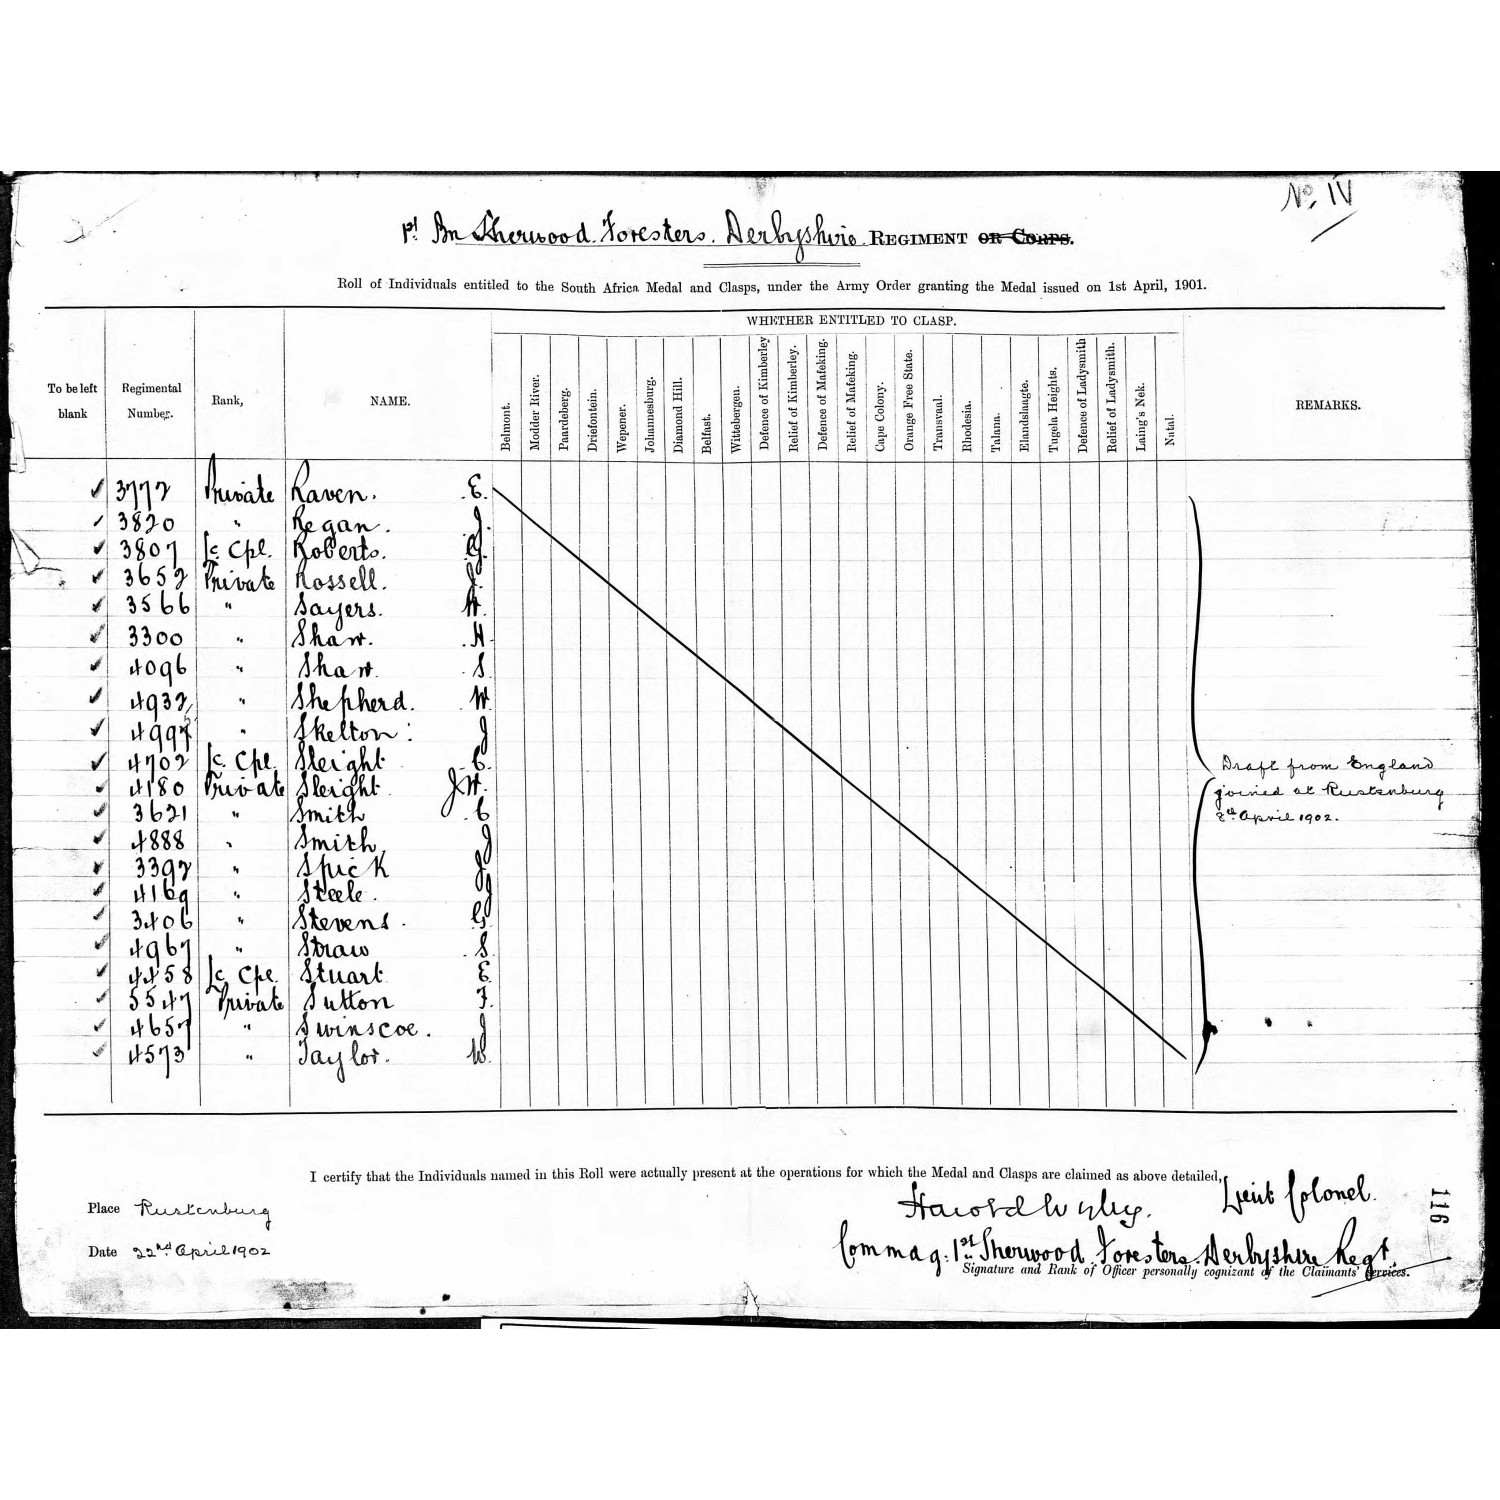 No. IV
1st Bn Sherwood Foresters. Derbyshire REGIMENT OR CORPS.
Roll of Individuals entitled to the South Africa Medal and Clasps, under the Army Order granting the Medal issued on 1st April, 1901.
WHETHER ENTITLED TO CLASP.
To be left blank
Regimental Number.
Rank,
NAME.
Belmont.
Modder River.
Paardeberg.
Driefontein.
Wepener.
Johannesburg.
Diamond Hill.
Belfast.
Wittebergen.
Defence of Kimberley
Relief of Kimberley.
Defence of Mafeking.
Relief of Mafeking.
Cape Colony.
Orange Free State.
Transvaal.
Rhodesia.
Talana.
Elandslaagte.
Tugela Heights.
Defence of Ladysmith
Relief of Ladysmith.
Laing's Nek.
Natal.
REMARKS.
3772 Private Raven. E.
3820 " Regan. J.
3807 Lc. Cpl. Roberts. G.
3652 Private Rossell. J.
3566 " Sayers. H.
3300 " Shaw. H
4096 " Shaw. S
4932 " Shepherd. W.
" Skelton. J
4702 Lc. Cpl. Sleight C.
4180 Private Sleight J.H.
3621 " Smith C
4888 " Smith J
3392 " Spick J
4169 " Steele. J
3406 " Stevens. G.
4967 " Straw S.
4458 Lc. Cpl. Stuart E.
5547 Private Sutton F.
4657 " Swinscoe. J
4573 " Taylor. W.
Draft from England
joined at Rustenburg
8th April 1902.
I certify that the Individuals named in this Roll were actually present at the operations for which the Medal and Clasps are claimed as above detailed,
Place Rustenburg
Harold Lieut Colonel.
Date 22nd April 1902
Commdg: 1st Sherwood Foresters. Derbyshire Regt.
Signature and Rank of Officer personally cognizant of the Claimants' Services.
116